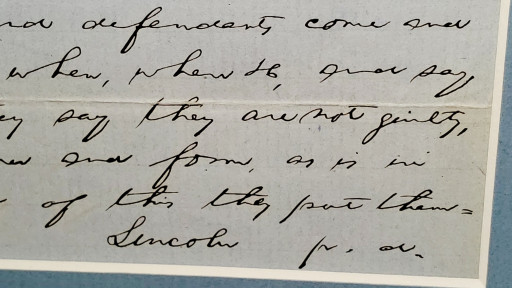 nd defendants come and
when, when &c, and say,
ey say they are not guilty,
and form, as is in
of this they put them=
Lincoln p. d.